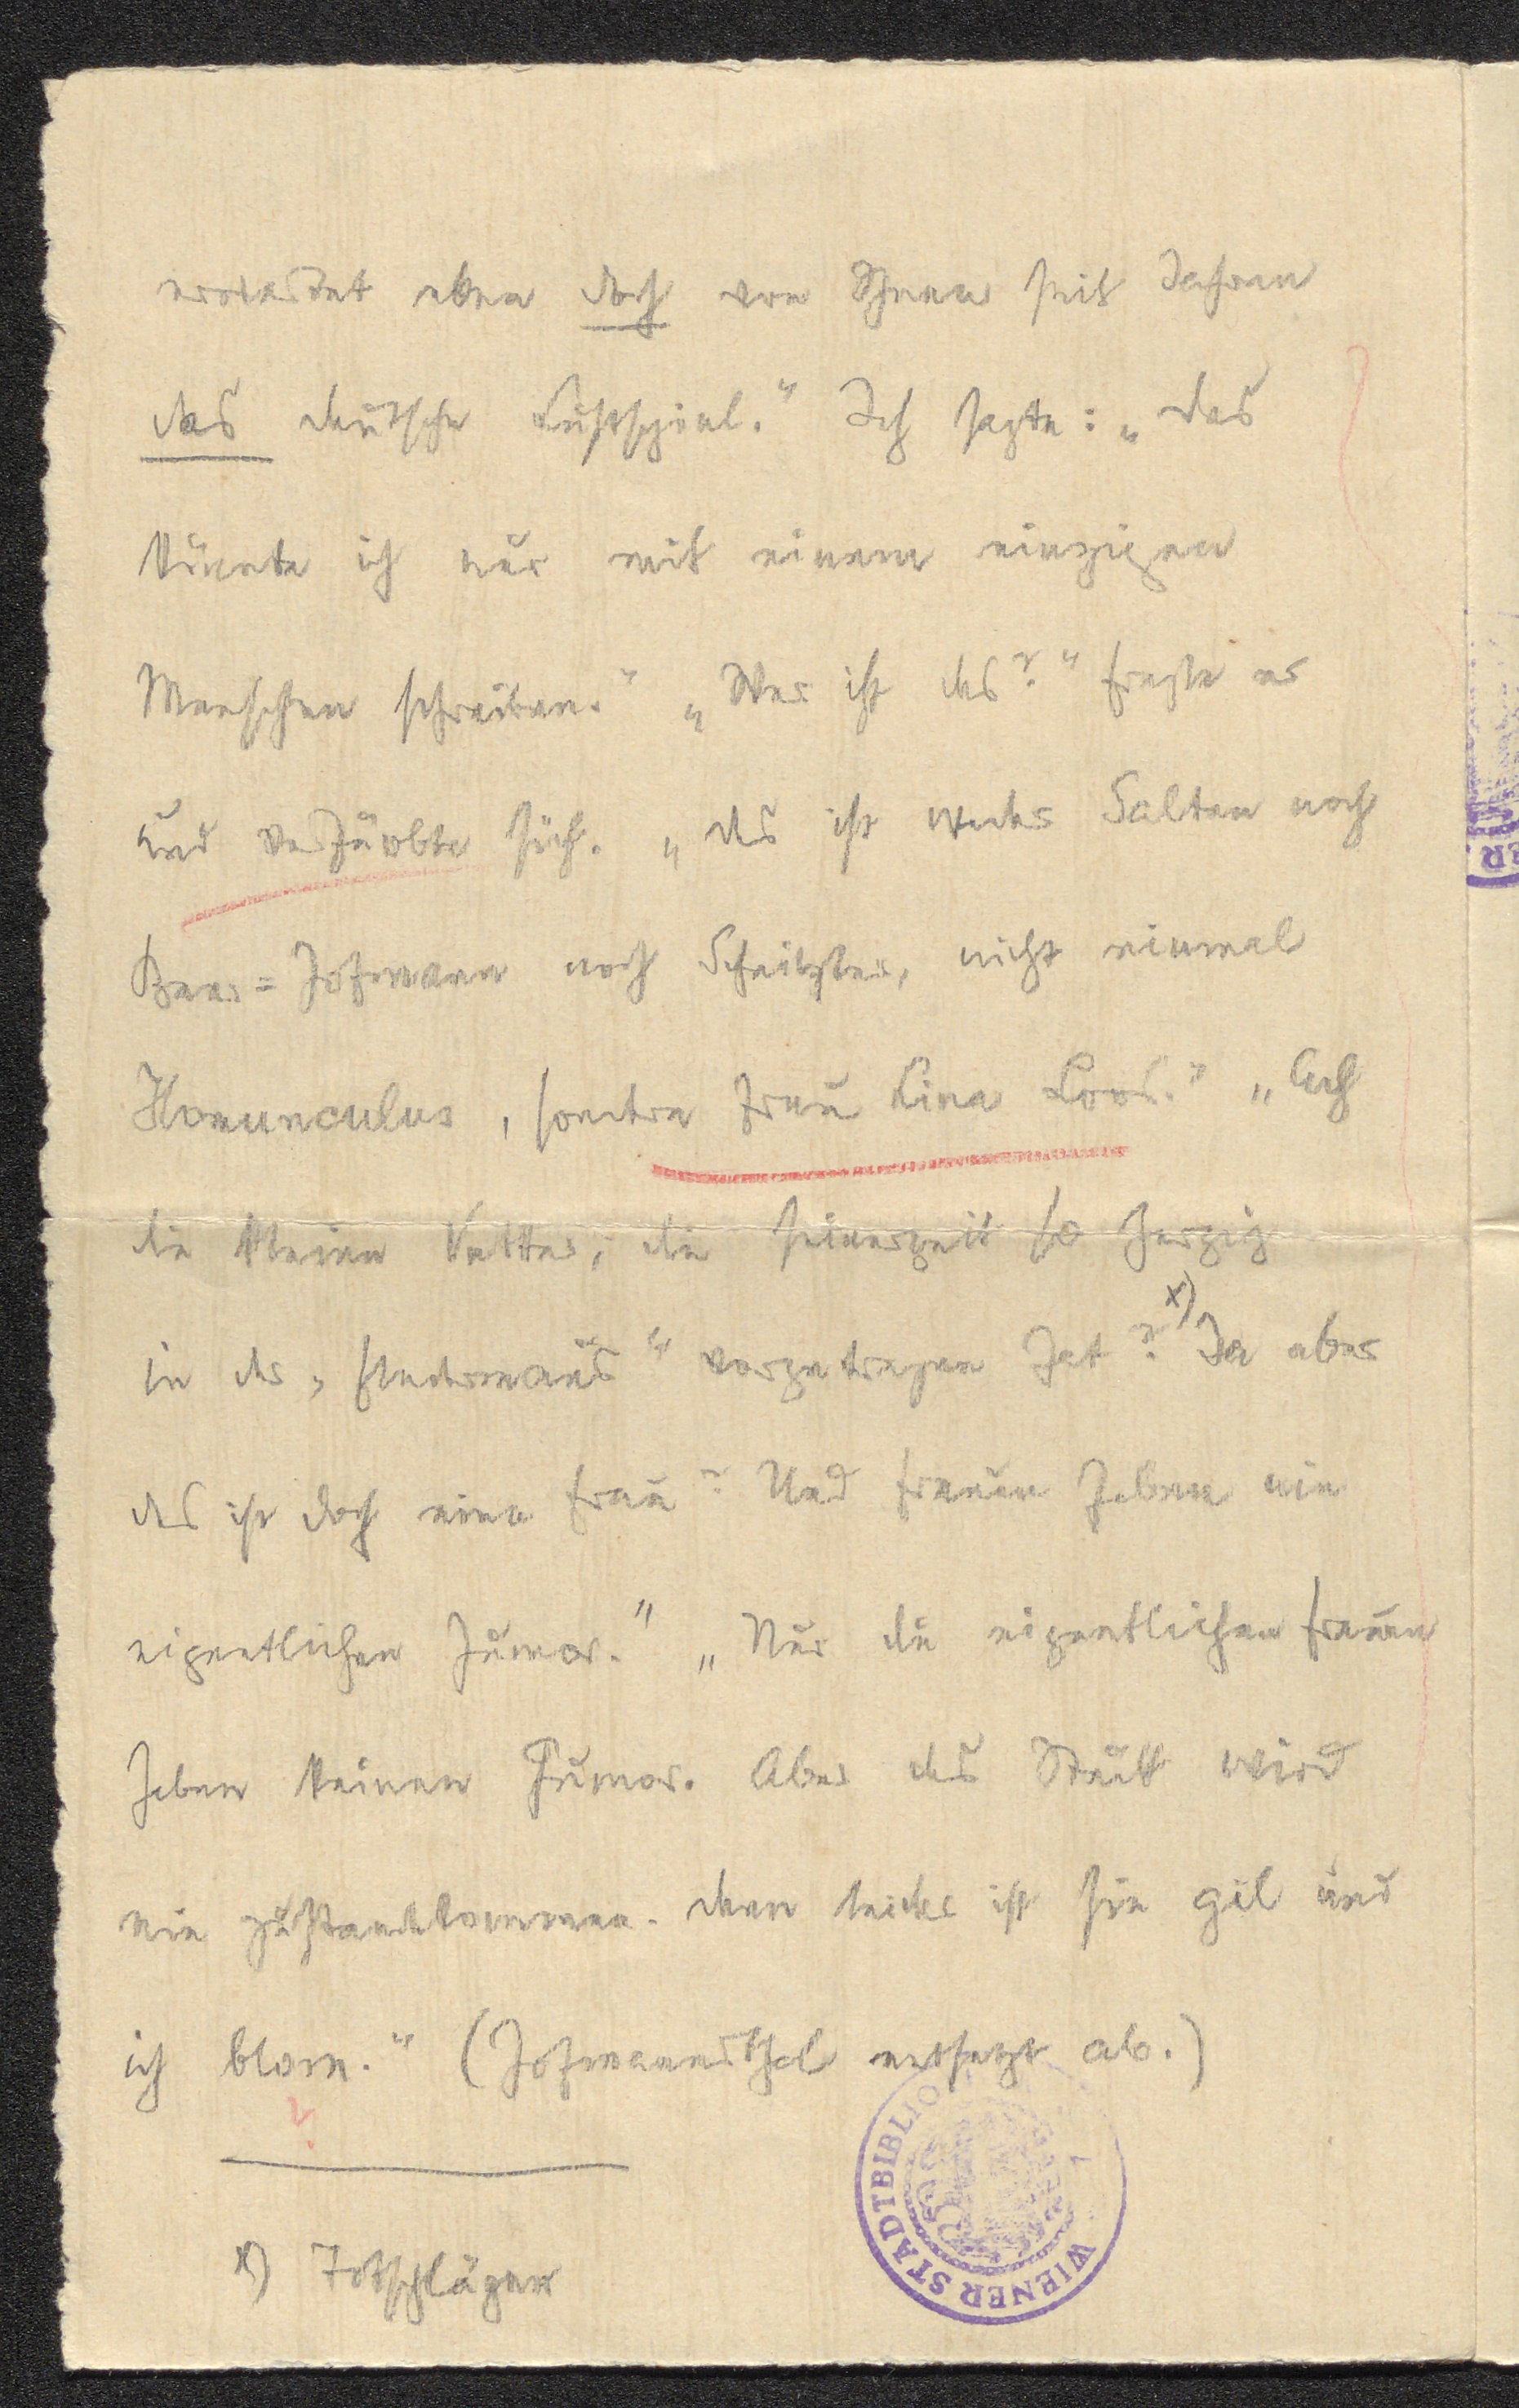 erwartet eben doch von Ihnen seit Jahren
das deutsche Lustspiel.“ Ich sagte: „das
könnte ich nur mit einem einzigen
Menschen schreiben.“ „Wer ist das?“ fragte er
und verfärbte sich. „das ist weder Salten noch
Beer=Hofmann noch Schnitzler, nicht einmal
Homunculus, sondern Frau Lina Loos.“ „Ach
die kleine Vetter, die seinerzeit so herzig
in der „Fledermaus“ vorgetragen hat? x) Ja aber
das ist doch eine Frau? Und Frauen haben nie
eigentlichen Humor.“ „Nur die eigentlichen Frauen
haben keinen Humor. Aber das Stück wird
nie zustandekommen. denn leider ist sie gil und
ich blom.“ (Hofmannsthal entsetzt ab.)
x) Totschläger
WIENER STADTBIBLIO